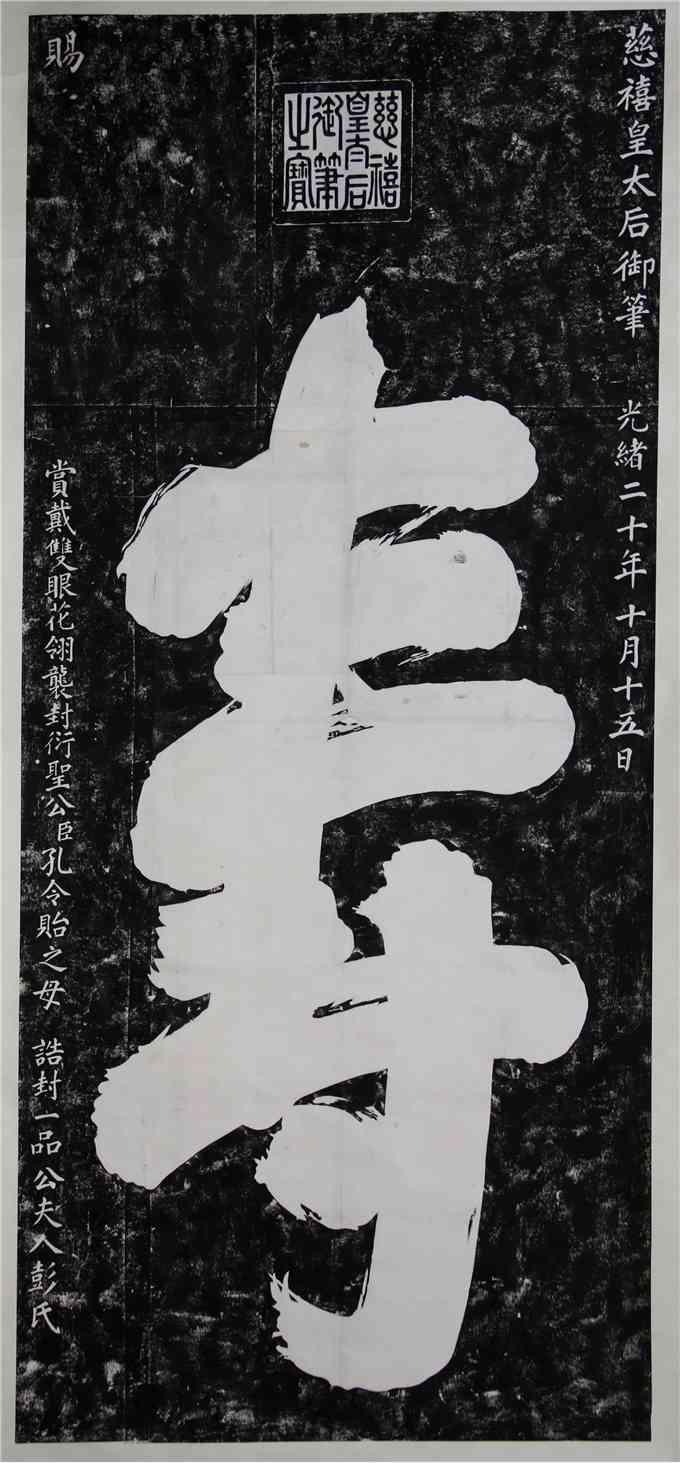 慈禧皇太后御筆 光緒二十年十月十五日
慈禧皇太后御筆之寶
壽
賜
賞戴雙眼花翎襲封衍聖公臣孔令貽之母 誥封一品公夫人彭氏